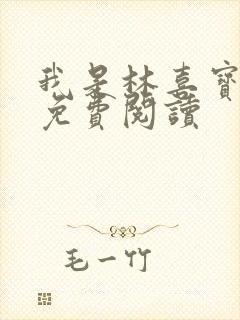 我是林喜寶
免費閱讀
毛一竹